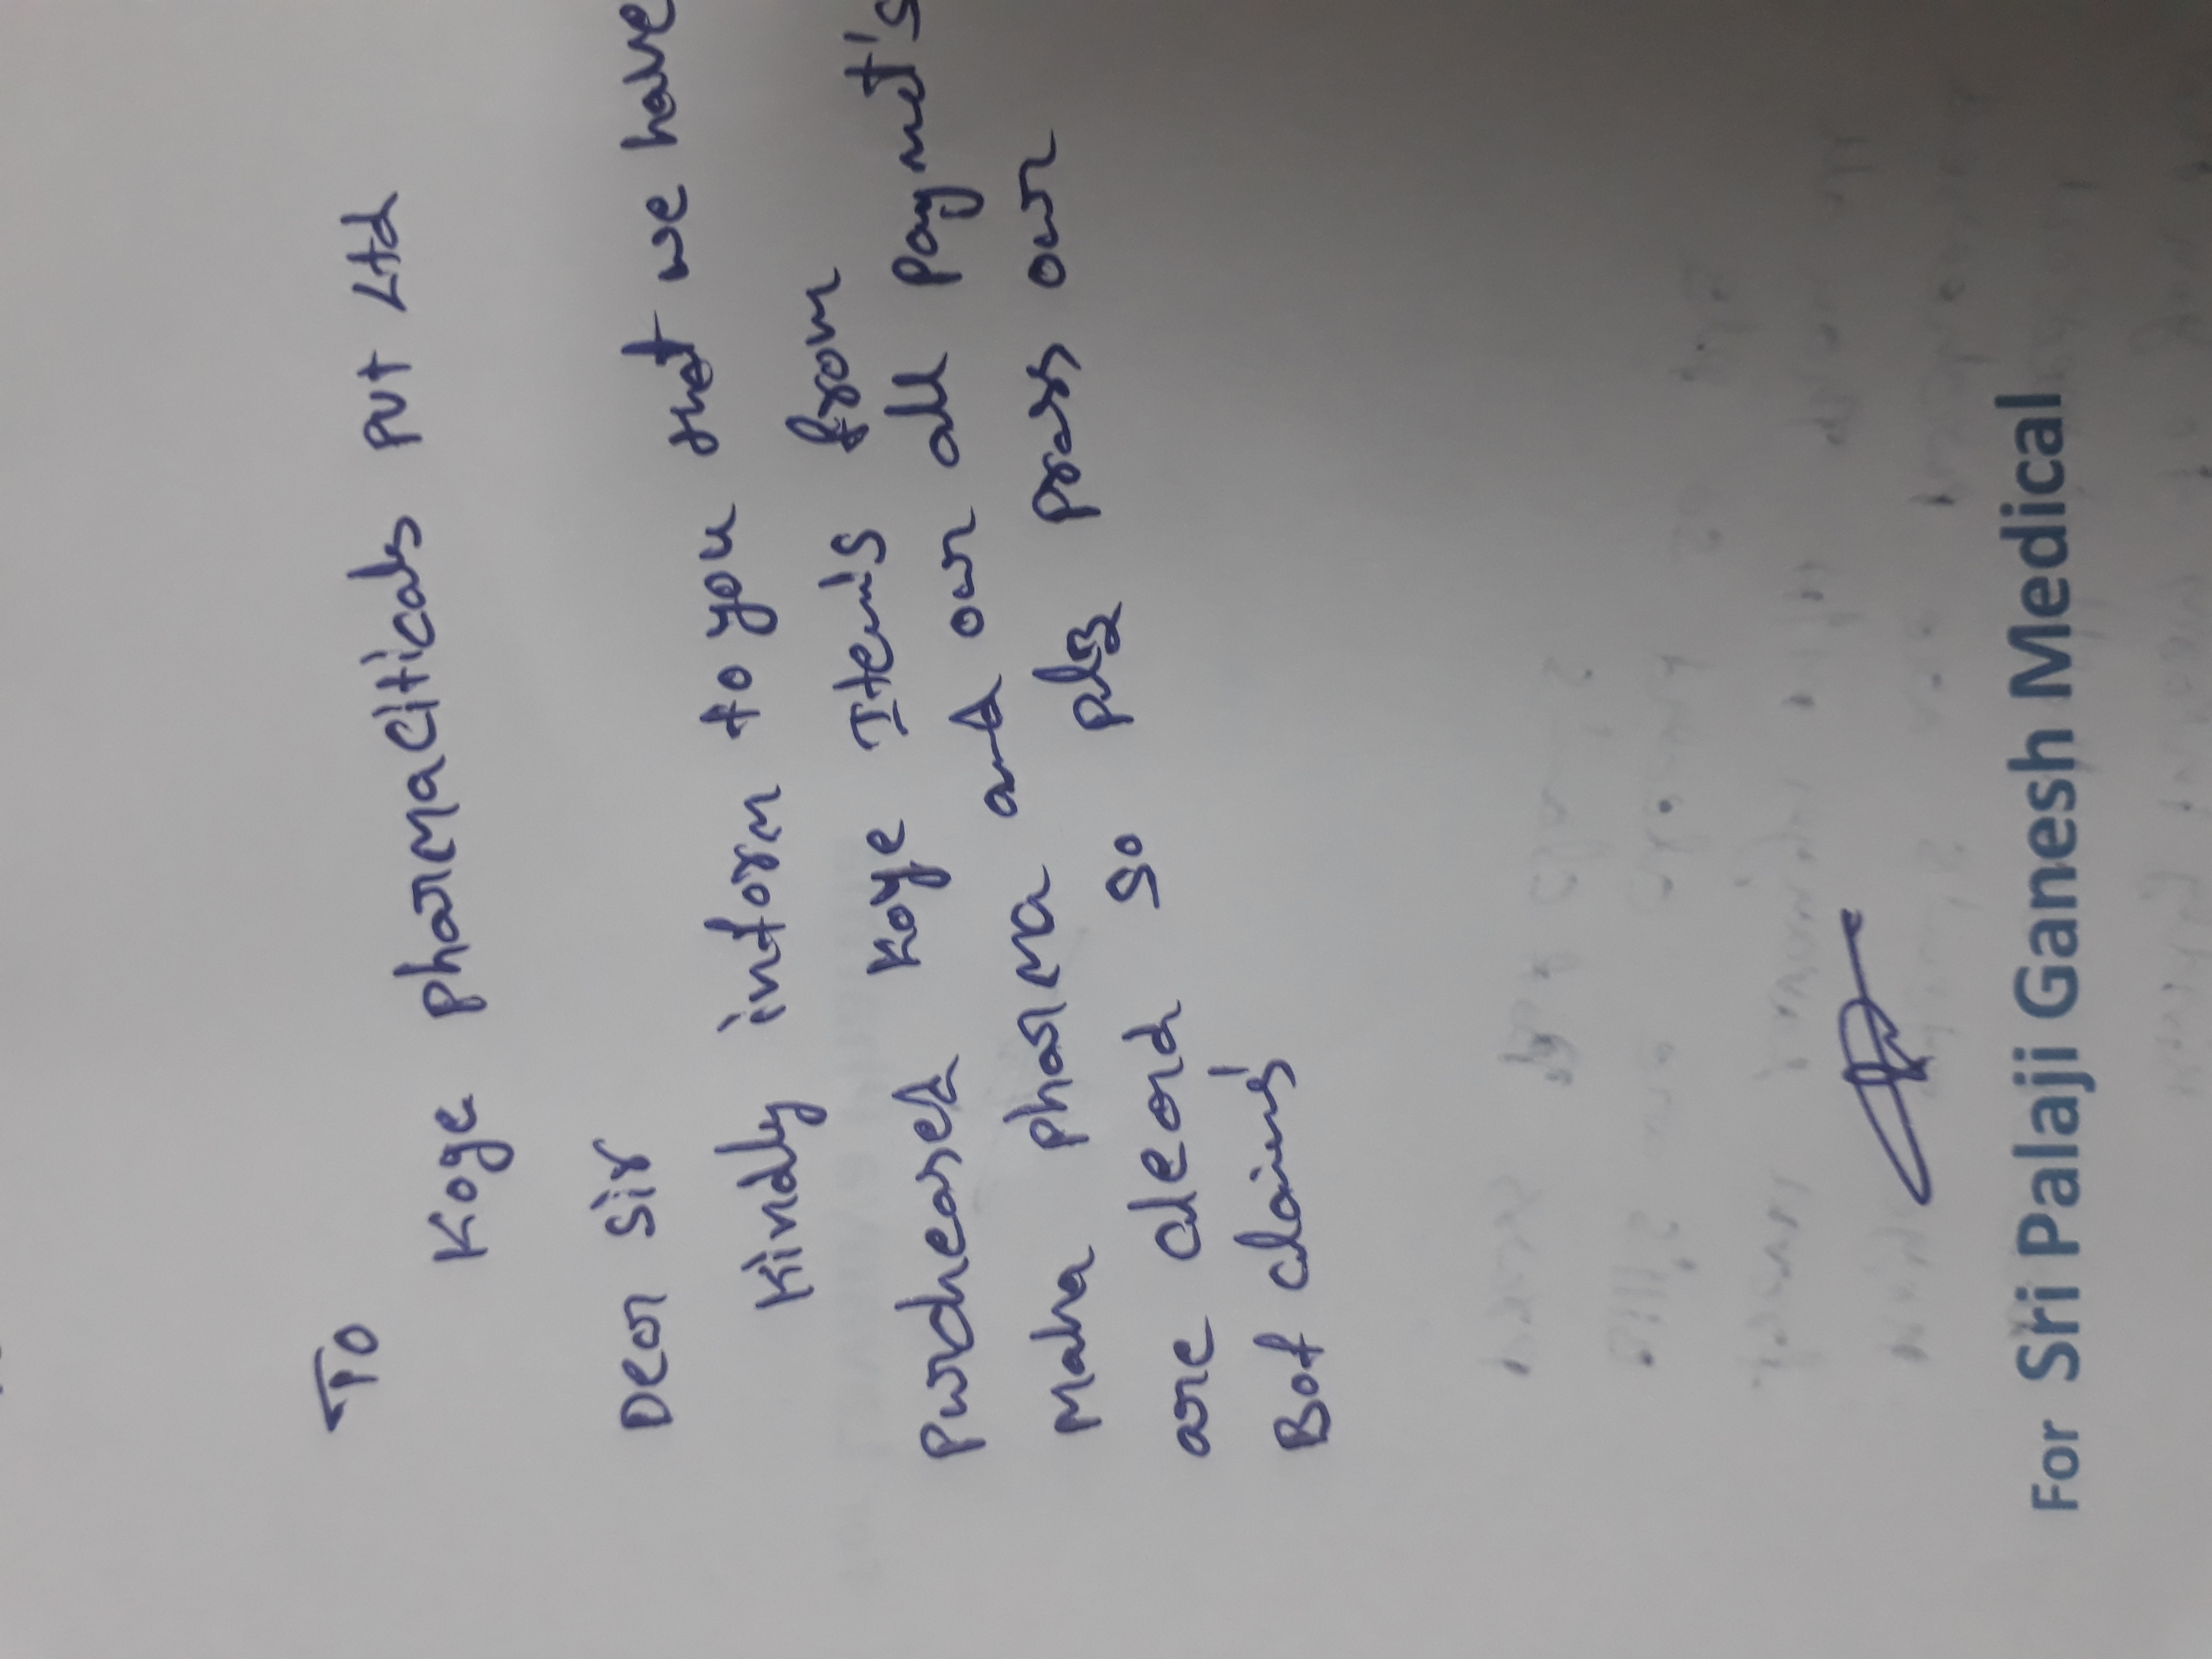 To
Koye pharmaciticals pvt Ltd
Dear Sir
Kindly inform to you that we have
Purchcased Koye Items from
Maha Pharma and our all Paymet's
are cleard So Plz Pass our
Bot claim's
For Sri Palaji Ganesh Medical